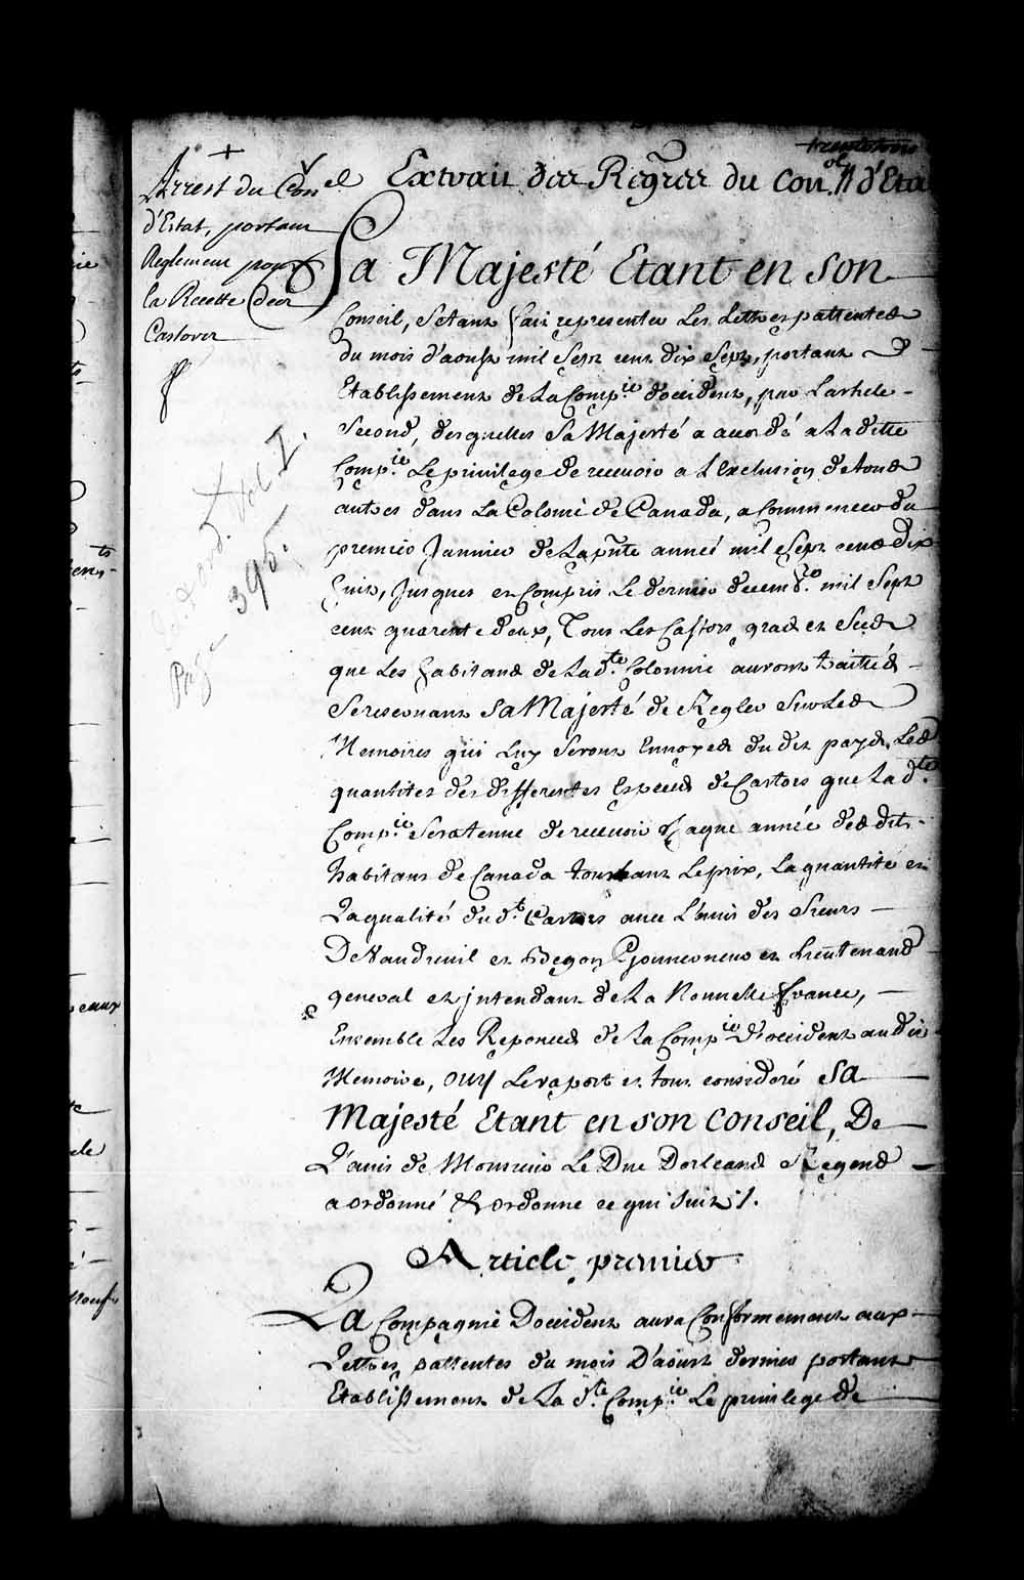 Arrest du Con.el
d'Estat, portant
Reglement pour
la Recette des
Castors
Extrait des Regres du Con.el d'Eta
Sa Majesté Etant en son
Conseil, s'etant fait representer Les Lettres pattentes
du mois d'aoust mil Sept cent dix Sept, portant
Etablissement de La Comp.ie d'occident, par Larticle
Second, desquelles Sa Majesté a accordé a Laditte
Comp.ie Le privilege de recevoir a L'exclusion de tous
autres dans La Colonie de Canada, a Commencer du
premier Janvier de La pnte année mil Sept cent dix
huit, Jusques et Compris Le dernier decembre mil Sept
cent quarente deux, Tous Les Castors gras et Secs
que Les habitans de Lad.te Colonnie auront traittés
Se reservant Sa Majesté de Regler Sur Les
Memoires qui Luy Seront Envoyés du dit pays, Les
quantites des differentes Especes de Castors que Lad.te
Comp.ie Sera tenue de recevoir chaque année des dits
habitans de Canada touchant Le prix, La quantité et
La qualité dud.t Castors avec L'avis des Sieurs
De Vaudreuil et Begon Gouverneur et Lieutenant
general et jntendant de La Nouvelle france,
Ensemble Les Reponces de La Comp.ie D'occident audit
Memoire, ouy Le raport et tout consideré Sa
Majesté Etant en son Conseil, De
L'avis de Monsieur Le Duc Dorleans Regent
a ordonné & ordonne ce qui suit /.
Article premier
La Compagnie D'occident aura Conformement aux
Lettres pattentes du mois D'aoust dernier portant
Etablissement de La d.te Comp.ie Le privilege de
Edits & ord. Vol I.
Page 395.